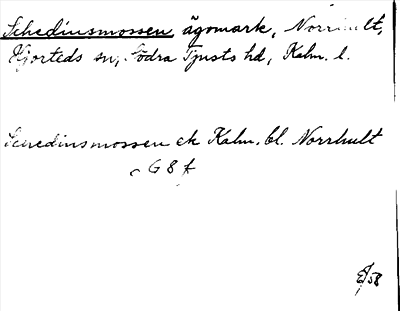 Schedinsmossen ägomark, Norrhult,
Hjorteds sn, Södra Tjusts hd, Kalm. l.
Schedinsmossen ek Kalm. bl. Norrhult
G 8 f
58